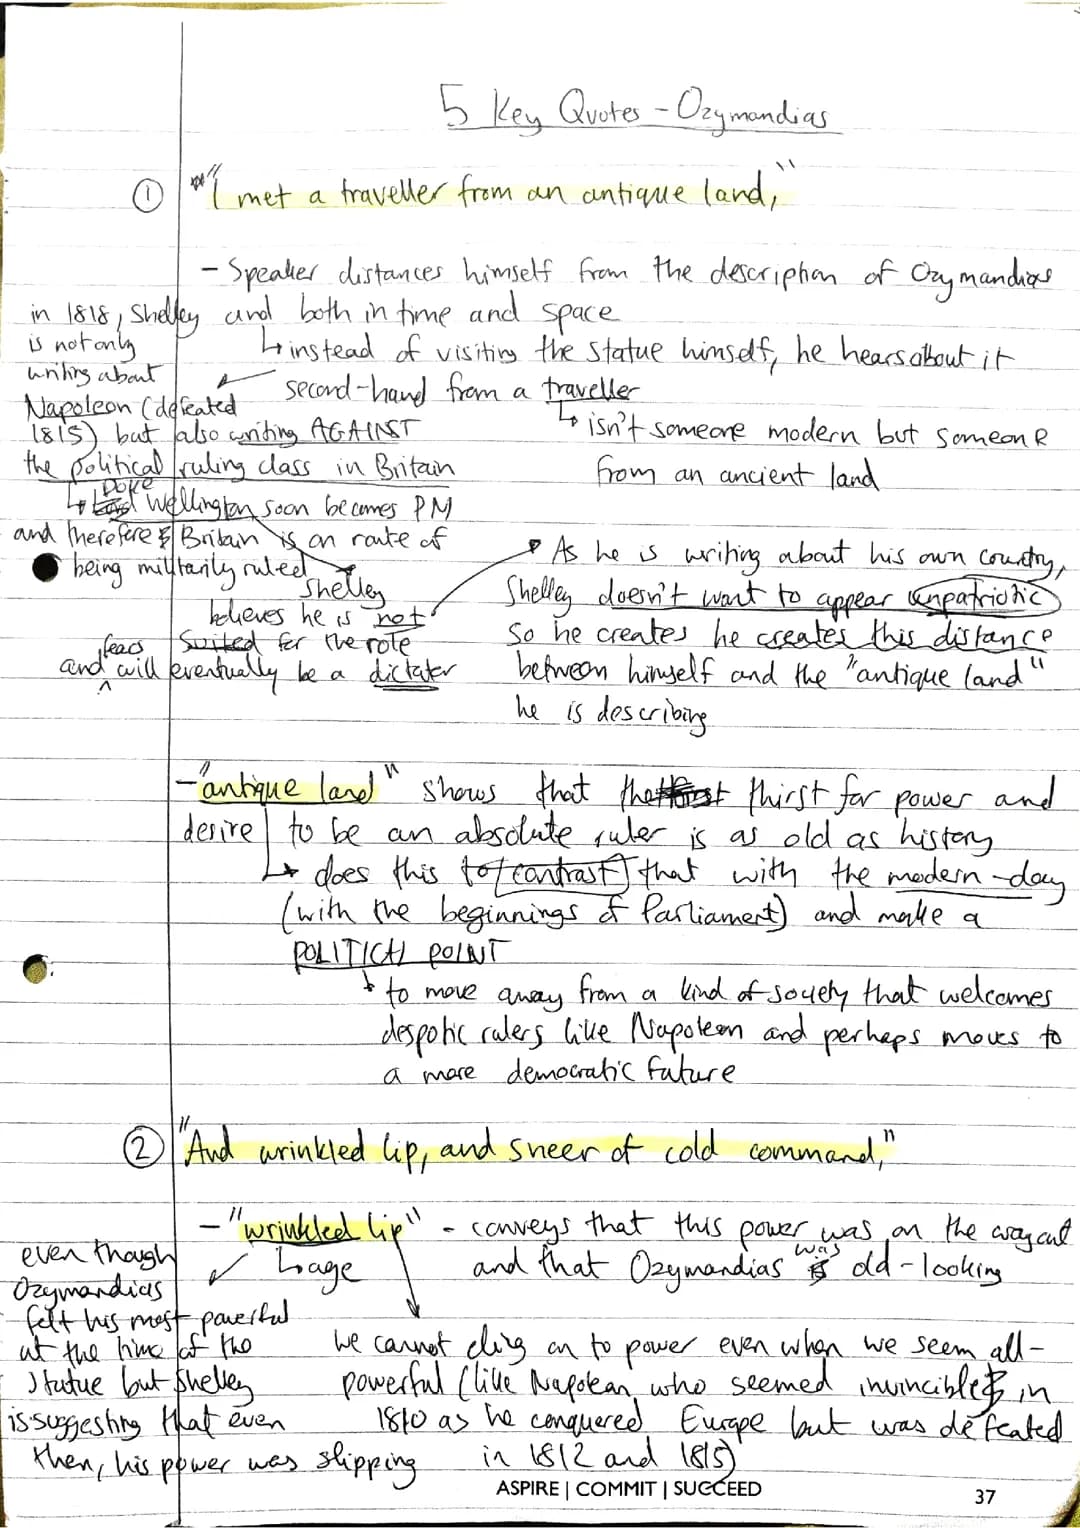 5 Key Quotes - Ozymandias
① "I met a traveller from an antique land,"
- Speaker distances himself from the description of Ozymandias
and both in time and space
↳ instead of visiting the statue himself, he hears about it
second-hand from a traveller
↳ isn't someone modern but someone
from an ancient land
in 1818, Shelley
is not only
writing about
Napoleon (defeated
1815) but also writing AGAINST
the political ruling class in Britain
↳ Duke Wellington soon becomes PM
and therefore Britain is on route of
being militarily ruled
Shelley
believes he is not
suited for the role
and fears will eventually be a dictater
As he is writing about his own country,
Shelley doesn't want to appear unpatriotic
so he creates he creates this distance
between himself and the "antique land"
he is describing
- "antique land" shows that the thirst for power and
desire to be an absolute ruler is as old as history
↳ does this to contrast that with the modern-day
(with the beginnings of Parliament) and make a
POLITICAL POINT
↳ to move away from a kind of society that welcomes
despotic rulers like Napoleon and perhaps moves to
a more democratic future
② "And wrinkled lip, and sneer of cold command,"
- "wrinkled lip" - conveys that this power was on the way out
↳ age
and that Ozymandias was old-looking
even though
Ozymandias
felt his most powerful
at the time of the
statue but Shelley
is suggesting that even
then, his power was slipping
we cannot cling on to power even when we seem all-
powerful (like Napolean who seemed invincible in
1810 as he conquered Europe but was defeated
in 1812 and 1815)
ASPIRE | COMMIT | SUCCEED
37